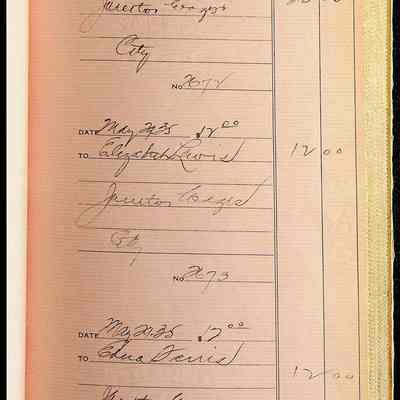 Janitor Wages
City
No 2672
DATE May 29, 35 12 00
TO Elizabeth Lewis 12 00
Janitor Wages
City
No 2673
DATE May 29, 35 12 00
TO Edna Ferris 12 00